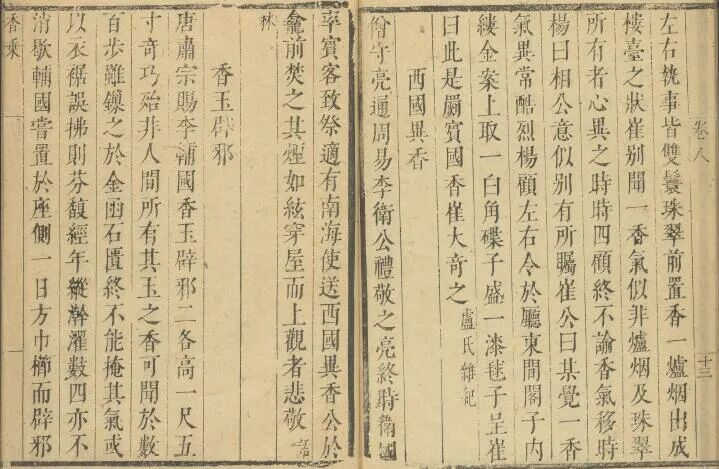 卷八
十三
左右執事皆雙鬟珠翠前置香一爐烟出成
樓臺之狀崔別聞一香氣似非爐烟及珠翠
所有者心異之時時四顧終不諭香氣移時
楊曰相公意似別有所矚崔公曰某覺一香
氣異常酷烈楊顧左右令於廳東間閣子内
縷金案上取一白角楪子盛一漆毬子呈崔
曰此是罽賓國香崔大奇之盧氏雜記
西國異香
僧守亮通周易李衛公禮敬之亮終時衛國
率賓客致祭適有南海使送西國異香公於
龕前焚之其煙如絃穿屋而上觀者悲敬語
林
香玉辟邪
唐肅宗賜李輔國香玉辟邪二各高一尺五
寸奇巧殆非人間所有其玉之香可聞於數
百步雖鎖之於金函石匱終不能掩其氣或
以衣裾誤拂則芬馥經年縱澣濯數四亦不
消歇輔國嘗置於座側一日方巾櫛而辟邪
香乘